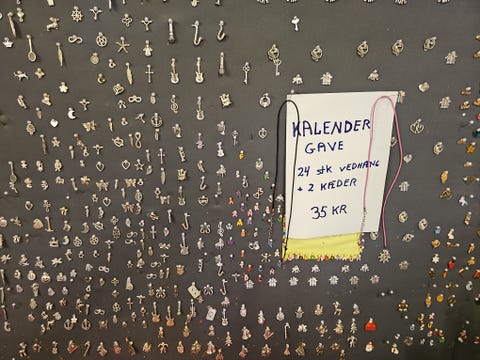 KALENDER
GAVE
24 stk VEDHÆNG
+ 2 KÆDER
35 KR